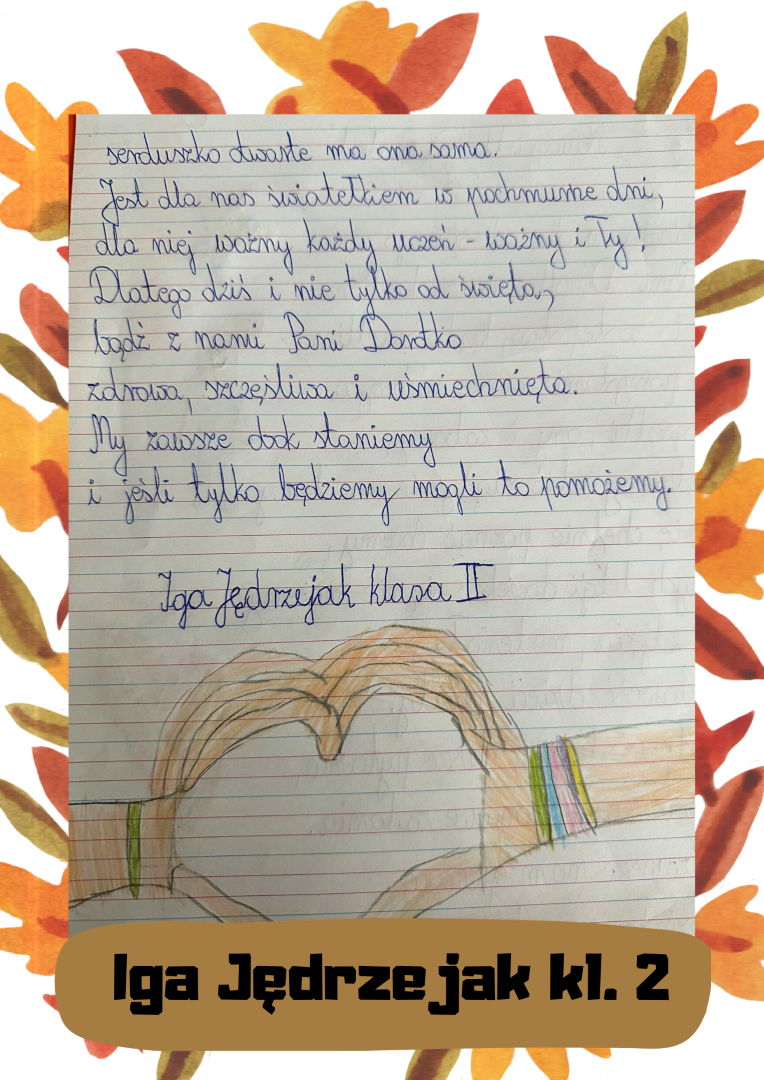 serduszko otwarte ma ona sama.
Jest dla nas światełkiem w pochmurne dni,
dla niej ważny każdy uczeń - ważny i Ty!
Dlatego dziś i nie tylko od święta,
bądź z nami Pani Dorotko
zdrowa, szczęśliwa i uśmiechnięta.
My zawsze obok staniemy
i jeśli tylko będziemy mogli to pomożemy.
Iga Jędrzejak klasa II
Iga Jędrzejak kl. 2